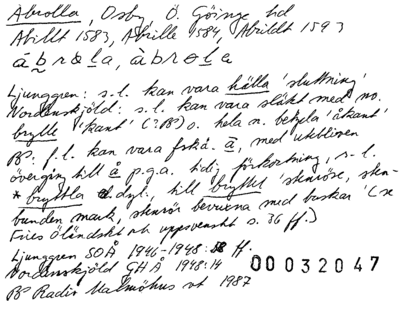 Abrolla, Osby, Ö. Göinge hd
Abillt 1583, Abrille 1584, Abrildt 1593
Ljunggren: s.l. kan vara hälla 'sluttning'
Nordenskjöld: s.l. kan vara släkt med no.
brylle 'kant' (?B³) o. hela n. betyda 'åkant'
B³: f.l. kan vara fskå. ā, med utebliven
övergång till å p.g.a. tidig förkortning, s-l.
*bryttla dyl., till bryttel 'stenröse, sten-
bunden mark, stenrör bevuxna med buskar' (se
Fries Öländskt och uppsvenskt s. 36 ff.)
Ljunggren SOÅ 1946-1948: ff.
Nordenskjöld GHÅ 1948:14
B³ Radio Malmöhus vt 1987
00032047